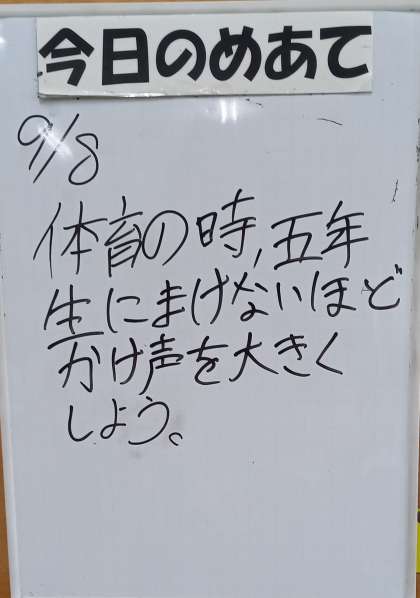 今日のめあて
9/8
体育の時,五年
生にまけないほど
かけ声を大きく
しよう。